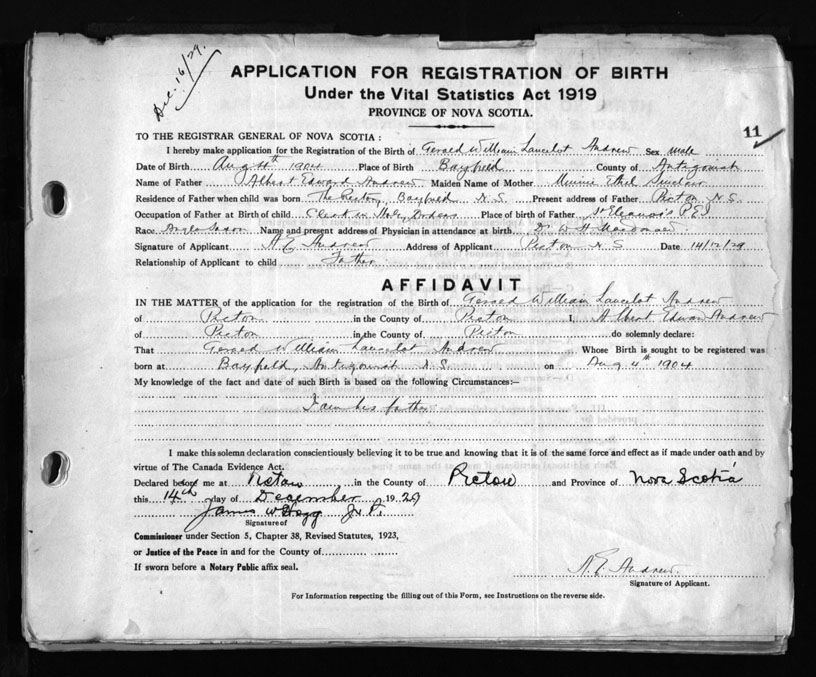 Dec. 16/29.
APPLICATION FOR REGISTRATION OF BIRTH
Under the Vital Statistics Act 1919
PROVINCE OF NOVA SCOTIA.
11
TO THE REGISTRAR GENERAL OF NOVA SCOTIA :
I hereby make application for the Registration of the Birth of Gerald William Lancelot Andrew Sex Male
Date of Birth Aug 4th 1904 Place of Birth Bayfield County of Antigonish
Name of Father Albert Edward Andrew Maiden Name of Mother Minnie Ethel Sinclair
Residence of Father when child was born The Rectory, Bayfield N. S. Present address of Father Pictou N. S.
Occupation of Father at Birth of child Clerk in Holy Orders Place of birth of Father St Eleanor's P E I
Race Anglo Saxon Name and present address of Physician in attendance at birth Dr W. H. Macdonald
Signature of Applicant A. E. Andrew Address of Applicant Pictou N. S Date 14/12/29
Relationship of Applicant to child Father
AFFIDAVIT
IN THE MATTER of the application for the registration of the Birth of Gerald William Lancelot Andrew
of Pictou in the County of Pictou I, Albert Edward Andrew
of Pictou in the County of Pictou do solemnly declare:
That Gerald William Lancelot Andrew Whose Birth is sought to be registered was
born at Bayfield, Antigonish N. S. on Aug 4th 1904
My knowledge of the fact and date of such Birth is based on the following Circumstances:—
I am his father
I make this solemn declaration conscientiously believing it to be true and knowing that it is of the same force and effect as if made under oath and by
virtue of The Canada Evidence Act.
Declared before me at Pictou in the County of Pictou and Province of Nova Scotia
this 14th day of December 1929
James W J. P.
Signature of
Commissioner under Section 5, Chapter 38, Revised Statutes, 1923,
or Justice of the Peace in and for the County of
If sworn before a Notary Public affix seal.
A. E. Andrew.
Signature of Applicant.
For Information respecting the filling out of this Form, see Instructions on the reverse side.